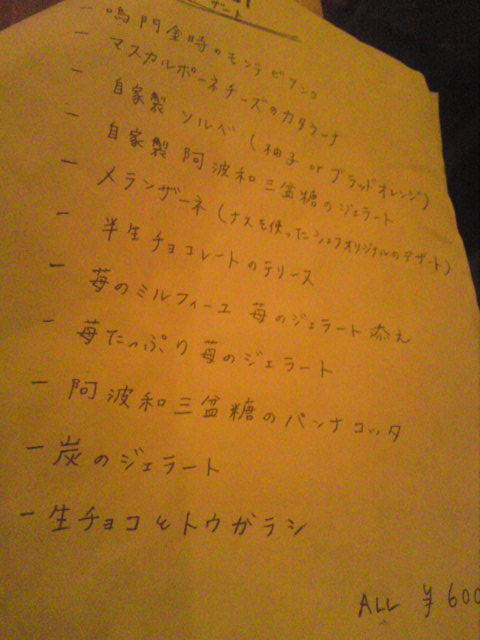 ザート
- 鳴門金時のモンテビアンコ
- マスカルポーネチーズのカタラーナ
- 自家製 ソルベ (柚子 or ブラッドオレンジ)
- 自家製 阿波和三盆糖のジェラート
- メランザーネ (ナスを使ったシェフオリジナルのデザート)
- 半生チョコレートのテリーヌ
- 苺のミルフィーユ 苺のジェラート添え
- 苺たっぷり苺のジェラート
- 阿波和三盆糖のパンナコッタ
- 炭のジェラート
- 生チョコとトウガラシ
ALL ¥600